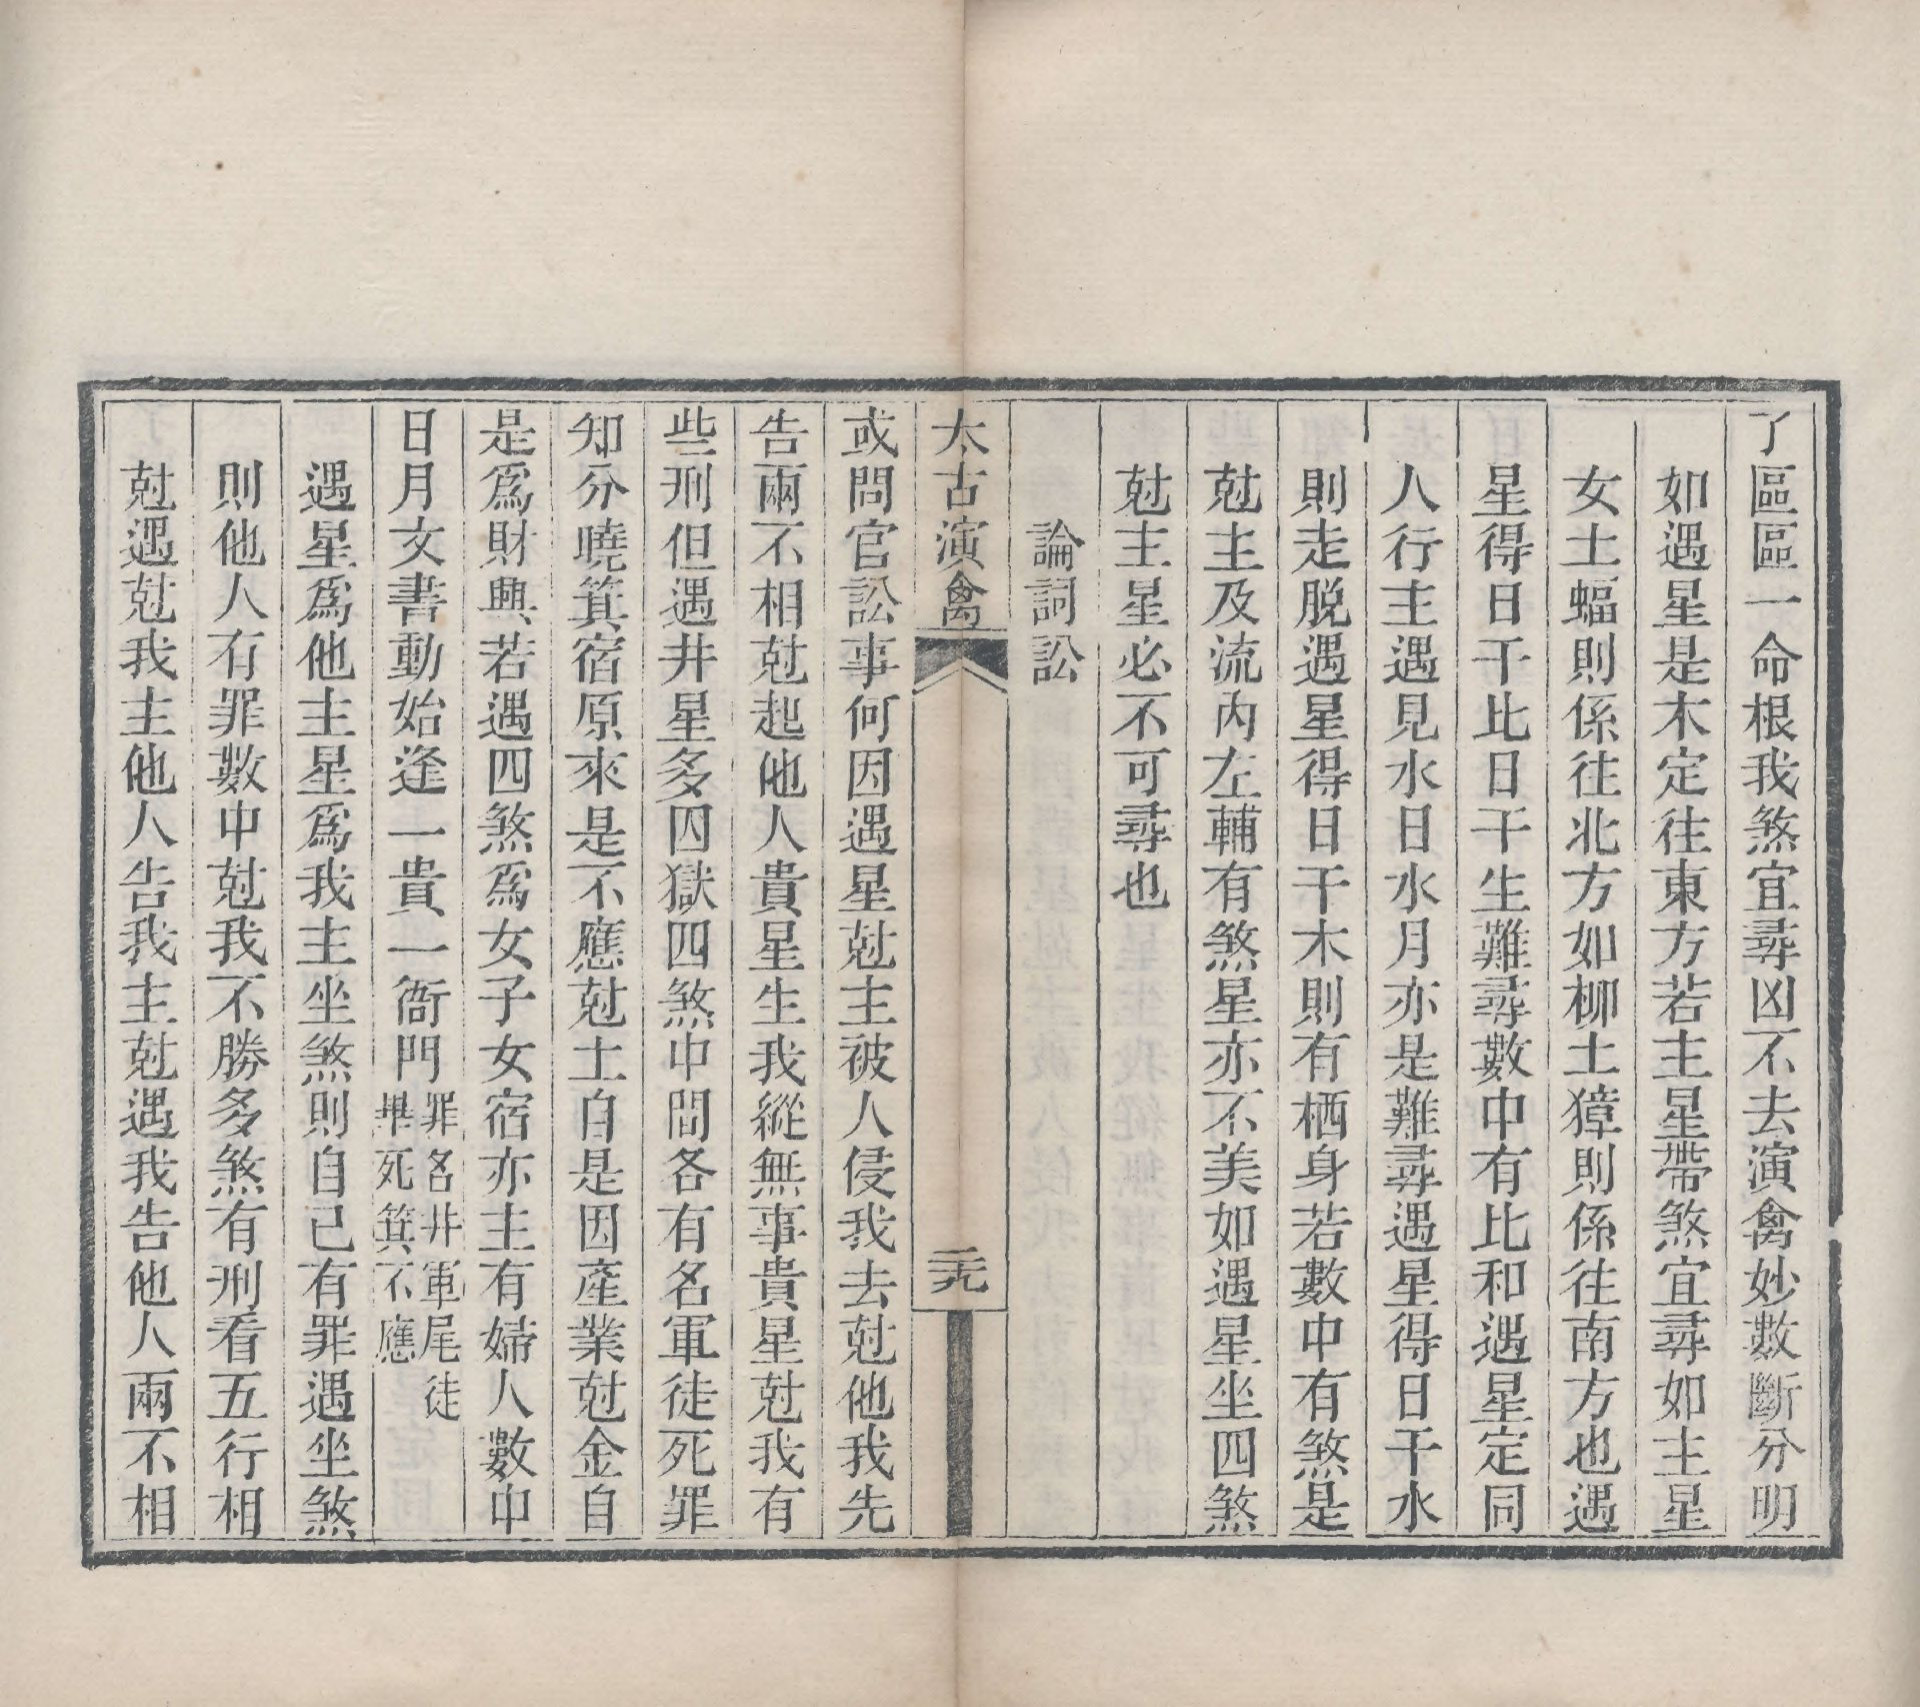 了區區一命根我煞宜尋凶不去演禽妙數斷分明
如遇星是木定往東方若主星帶煞宜尋如主星
女土蝠則係往北方如柳土獐則係往南方也遇
星得日干比日干生難尋數中有比和遇星定同
人行主遇見水日水月亦是難尋遇星得日干水
則走脫遇星得日干木則有栖身若數中有煞是
尅主及流內左輔有煞星亦不美如遇星坐四煞
尅主星必不可尋也
論詞訟
太古演禽
二九
或問官訟事何因遇星尅主被人侵我去尅他我先
告兩不相尅起他人貴星生我縱無事貴星尅我有
些刑但遇井星多囚獄四煞中間各有名軍徒死罪
知分曉箕宿原來是不應尅土自是因產業尅金自
是為財興若遇四煞為女子女宿亦主有婦人數中
日月文書動始逢一貴一衙門
罪名井軍尾徒
畢死箕不應
遇星為他主星為我主坐煞則自己有罪遇坐煞
則他人有罪數中尅我不勝多煞有刑看五行相
尅遇尅我主他人告我主尅遇我告他人兩不相